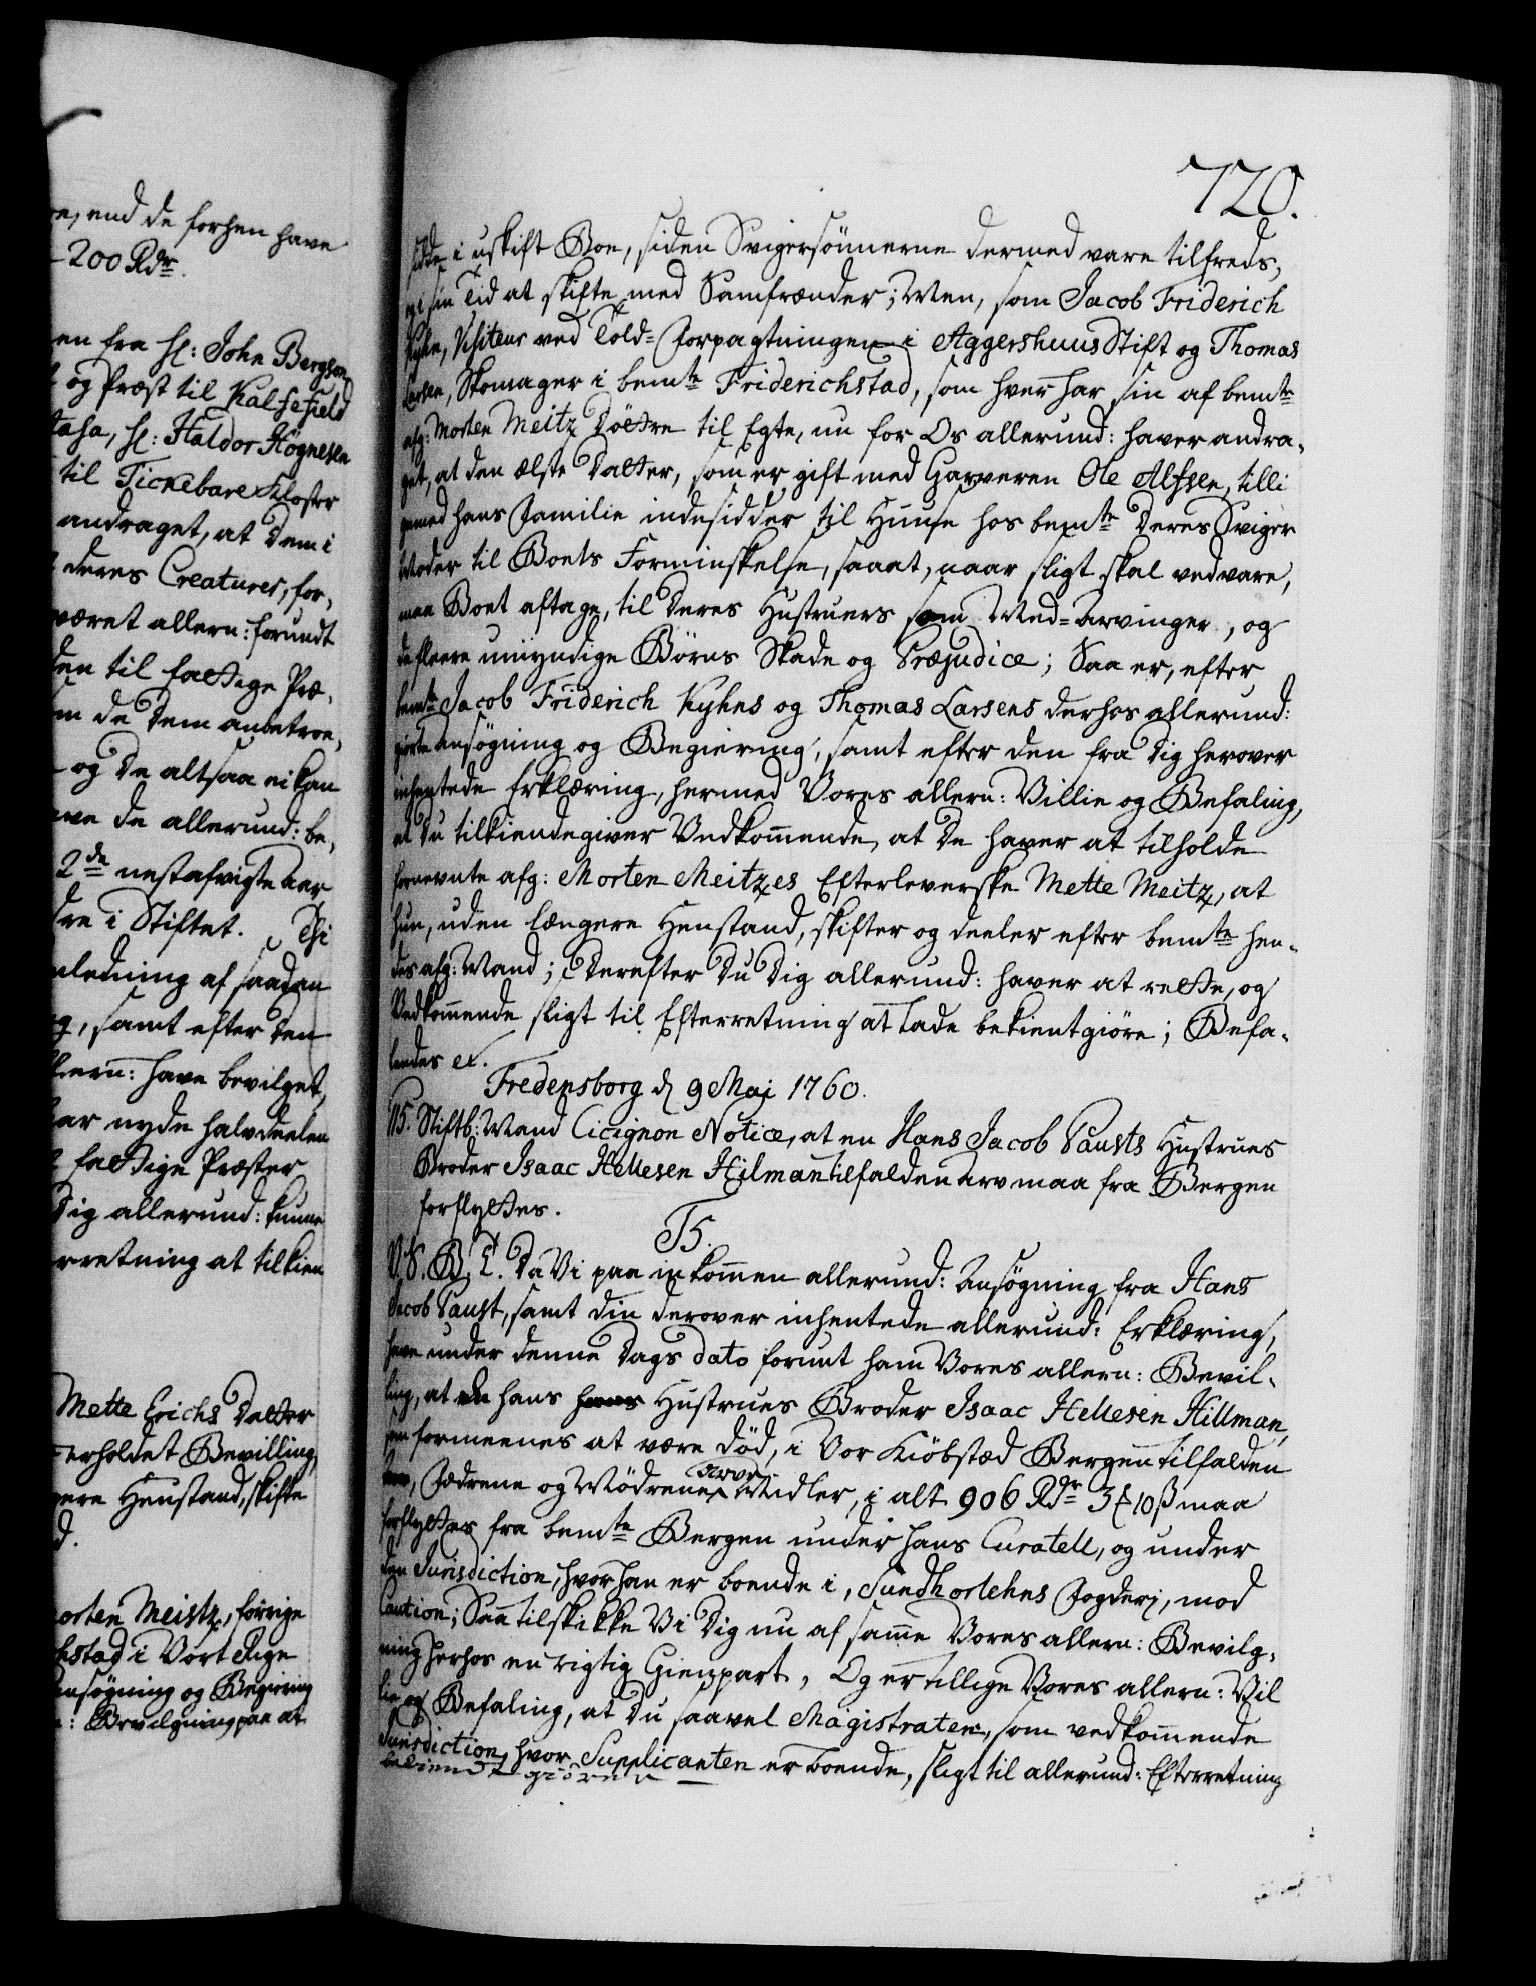 re, end de forhen have
- 200 Rdr.
en fra hr: John Bergson
og Præst til Kalfefield
tasa, hr: Haldor Høgnesen
til Tickebare Kloster
andraget, at dem i
deres Creaturer, for-
været allern: forundt
den til fattige Præ-
m de dem anbetroe,
og de altsaa ei kan
ave de allerund: be-
2de nestafvigte Aar
dre i Stiftet. Thi
nledning af saadan
g, samt efter den
llern: have bevilget,
aar nyde halvdeelen
fattige Præster
Dig allerund: kunne
rretning at tilkien
Mette Erichs Datter
erholdet Bevilling
gere Henstand, skifte
d.
orten Meistz, forrige
chstad i Vort Rige
ansøgning og Begiering
n: Bevilgning paa at
720.
sidde i uskift Boe, siden Svigersønnerne dermed vare tilfreds,
og sin Tid at skifte med Samfrænder; Men, som Jacob Friderich
Kyhn, Visiteur ved Told-Forpagtningen i Aggershuus Stift og Thomas
Larsen, Skomager i bemte Friderichstad, som hver har sin af bemte
afg: Morten Meitz Døttre til Egte, nu for Os allerund: haver andra-
get, at den ælste Datter, som er gift med Garveren Ole Alfsen, tilli
gemed hans Familie indesidder til Huuse hos bemte Deres Sviger
Moder til Boets Forminskelse, saaat, naar sligt skal vedvare,
maa Boet aftage, til Deres Hustruers som Med-Arvinger, og
de fleere umyndige Børns Skade og Præjudice; Saa er, efter
bemte Jacob Friderich Kyhns og Thomas Larsens derhos allerund:
giorte ansøgning og Begiering, samt efter den fra Dig herover
inhentede Erklæring, hermed Vores allern: Villie og Befaling,
at Du tilkiendegiver Vedkommende, at De haver at tilholde
fornevnte afg: Morten Meitzes Efterleverske Mette Meitz, at
hun, uden længere Henstand, skifter og deeler efter bemte hen-
des afg: Mand; Derefter Du Dig allerund: haver at rette, og
Vedkommende sligt til Efterretning at lade bekientgiøre; Befa-
lendes etc.
Fredensborg d 9 Maj 1760.
115. Stiftb: Mand Cicignon Notice, at en Hans Jacob Fausts Hustrues
Broder Isaac Hellesen Hilman tilfalden Arv maa fra Bergen
forflyttes.
F5.
V. S. G. T. Da Vi paa inkommen allerund: Ansøgning fra Hans
Jacob Faust, samt din derover inhentede allerund: Erklæring,
have under denne Dags dato forunt ham Vores allern: Bevil-
ling, at de hans hans Hustrues Broder Isaac Hellesen Hillman,
som formeenes at være død, i Vor Kiøbstæd Bergen tilfalden
Arv, Fædrene og Mødrene Arve Midler, i alt 906 Rdr 3 ₰ 10 ß maa
forflyttes fra bemte Bergen under hans Curatell, og under
den Jurisdiction, hvor han er boende i, Sundhorlehns Fogderj, mod
Caution; Saa tilskikke Vi Dig nu af samme Vores allern: Bevilg-
ning herhos en rigtig Gienpart, Og er tillige Vores allern: Vil
lie og Befaling, at Du saavel Magistraten, som vedkommende
Jurisdiction, hvor Supplicanten er boende, sligt til allerund: Efterretning
bekiendtgiører